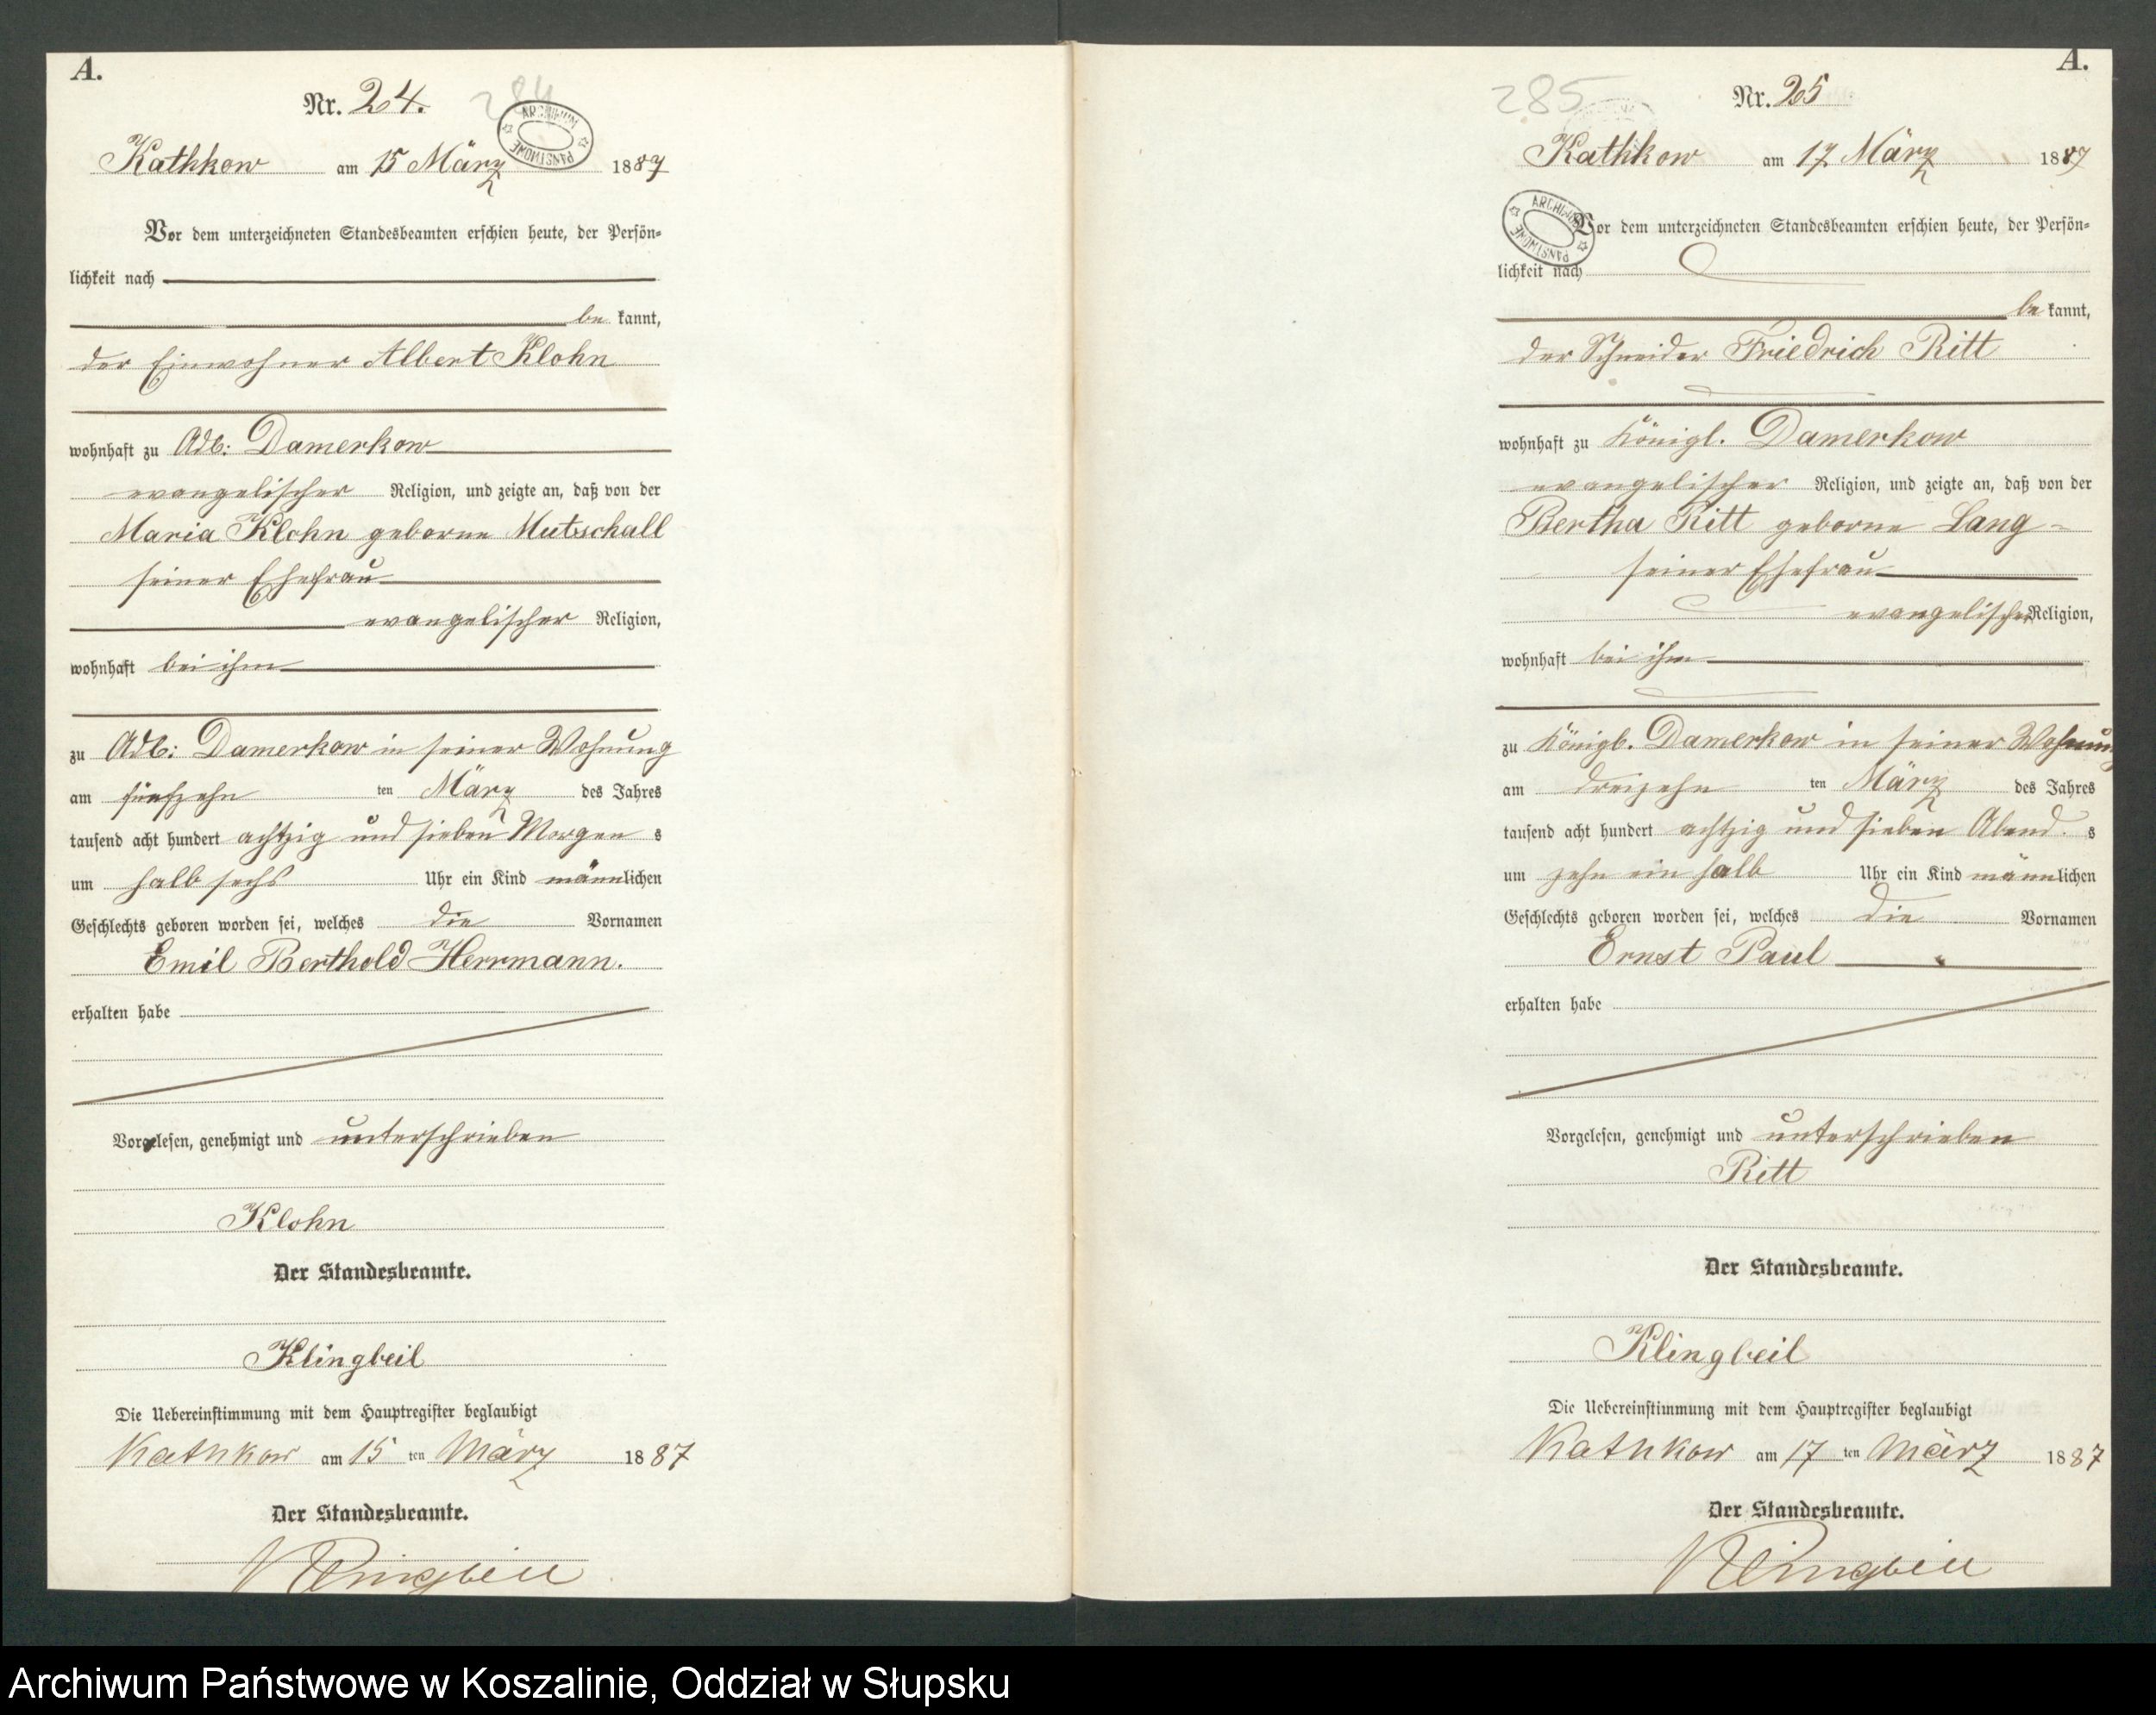 A.
Nr. 24.
284
ARCHIWUM PAŃSTWOWE
Kathkow am 15 März 1887
Vor dem unterzeichneten Standesbeamten erschien heute, der Persön-
lichkeit nach
be kannt,
der Einwohner Albert Klohn
wohnhaft zu Adl: Damerkow
evangelischer Religion, und zeigte an, daß von der
Maria Klohn geborne Mutschall
seiner Ehefrau
evangelischer Religion,
wohnhaft bei ihm
zu Adl: Damerkow in seiner Wohnung
am fünfzehn ten März des Jahres
tausend acht hundert achtzig und sieben Morgen s
um halb sechs Uhr ein Kind männlichen
Geschlechts geboren worden sei, welches die Vornamen
Emil Berthold Herrmann.
erhalten habe
Vorgelesen, genehmigt und unterschrieben
Klohn
Der Standesbeamte.
Klingbeil
Die Uebereinstimmung mit dem Hauptregister beglaubigt
Kathkow am 15 ten März 1887
Der Standesbeamte.
Klingbeil
A.
285
Nr. 25
Kathkow am 17 März 1887
ARCHIWUM PAŃSTWOWE
Vor dem unterzeichneten Standesbeamten erschien heute, der Persön-
lichkeit nach
be kannt,
der Schneider Friedrich Ritt
wohnhaft zu Königl. Damerkow
evangelischer Religion, und zeigte an, daß von der
Bertha Ritt geborne Lang-
seiner Ehefrau
evangelischer Religion,
wohnhaft bei ihm
zu Königl. Damerkow in seiner Wohnung
am dreizehn ten März des Jahres
tausend acht hundert achtzig und sieben Abend s
um zehn ein halb Uhr ein Kind männlichen
Geschlechts geboren worden sei, welches die Vornamen
Ernst Paul
erhalten habe
Vorgelesen, genehmigt und unterschrieben
Ritt
Der Standesbeamte.
Klingbeil
Die Uebereinstimmung mit dem Hauptregister beglaubigt
Kathkow am 17 ten März 1887
Der Standesbeamte.
Klingbeil
Archiwum Państwowe w Koszalinie, Oddział w Słupsku